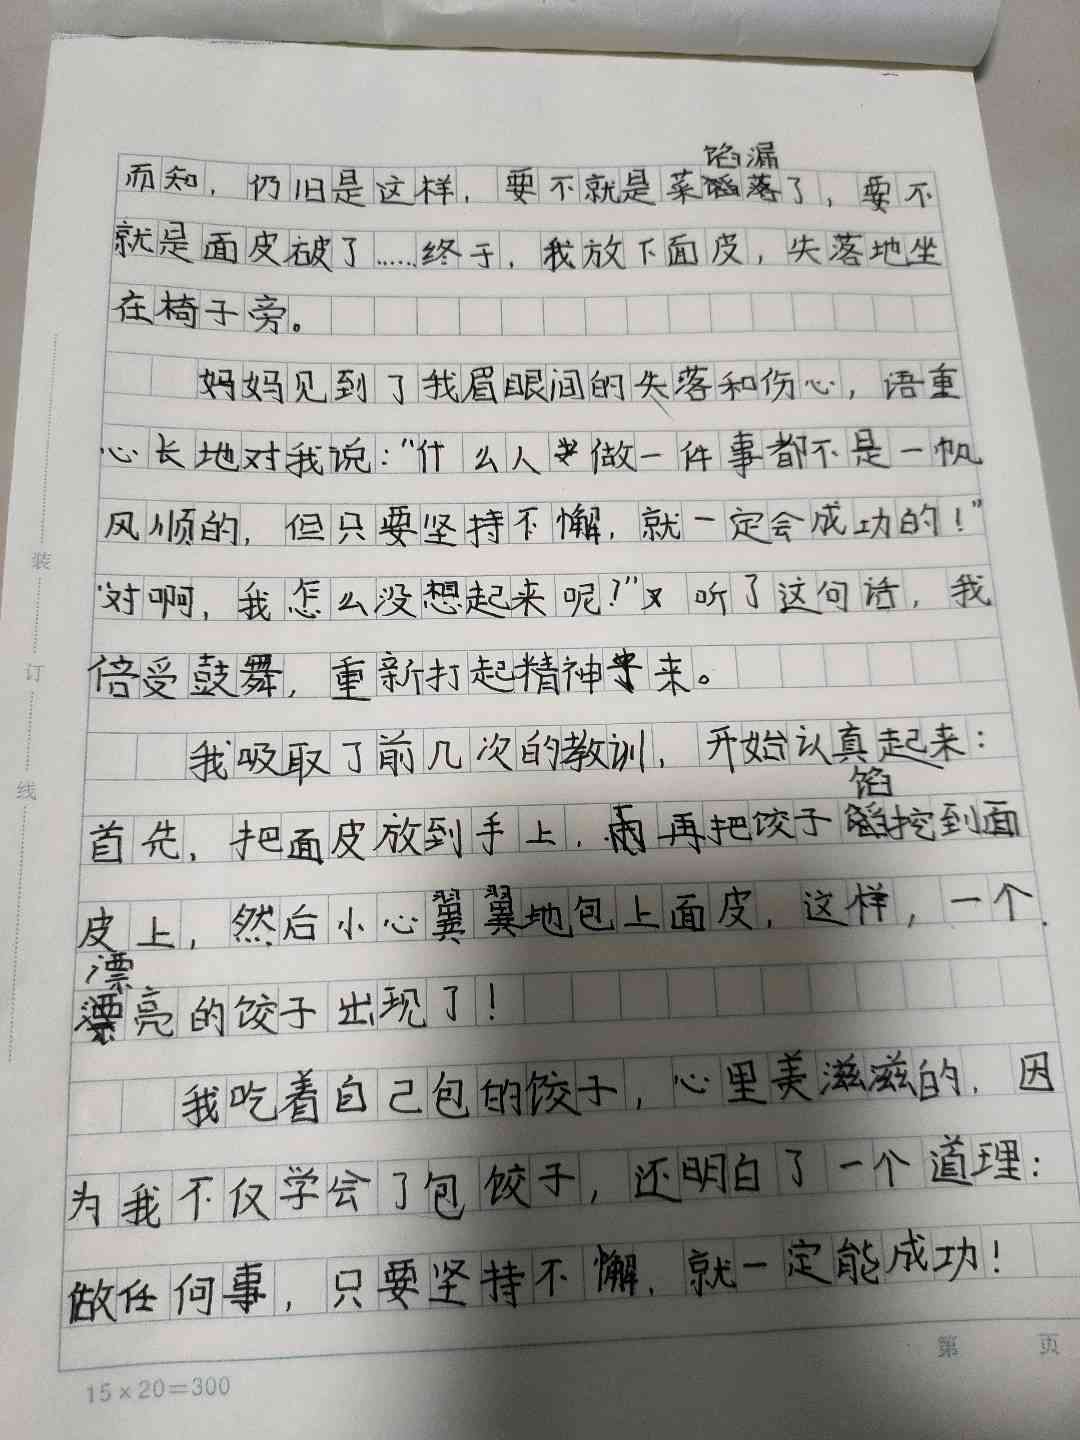 而知，仍旧是这样，要不就是菜馅漏了，要不
就是面皮破了……终于，我放下面皮，失落地坐
在椅子旁。
妈妈见到了我眉眼间的失落和伤心，语重
心长地对我说：“什么人做一件事都不是一帆
风顺的，但只要坚持不懈，就一定会成功的！”
“对啊，我怎么没想起来呢？”听了这句话，我
倍受鼓舞，重新打起精神来。
我吸取了前几次的教训，开始认真起来：
首先，把面皮放到手上，再把饺子馅挖到面
皮上，然后小心翼翼地包上面皮，这样，一个
漂亮的饺子出现了！
我吃着自己包的饺子，心里美滋滋的，因
为我不仅学会了包饺子，还明白了一个道理：
做任何事，只要坚持不懈，就一定能成功！
装
订
线
第 页
15×20=300